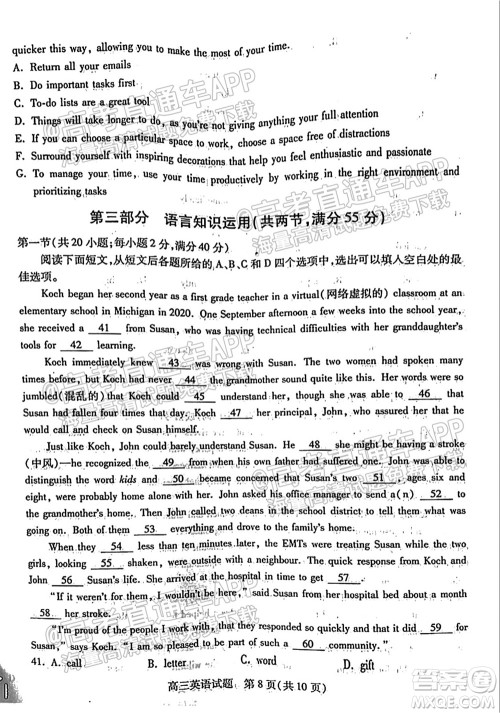 quicker this way, allowing you to make the most of your time.
A. Return all your emails
B. Do important tasks first
C. To-do lists are a great tool
D. Things will take longer to do, as you're not giving anything your full attention
E. If you can choose a particular space to work, choose somewhere free of distractions
F. Surround yourself with inspiring decorations they help you feel enthusiastic and passionate
G. To manage your time, you need to be working in the right environment and prioritising effectively
第三部分 语言知识运用(共两节,满分55分)
第一节(共20小题;每小题2分,满分40分)
阅读下面短文,从短文后各题所给的A、B、C和D四个选项中,选出可以填入空白处的最佳选项。
Koch began her second year as a first grade teacher in a virtual(网络虚拟的) classroom at an
elementary school in Michigan in 2020. One September afternoon a few weeks into the school year,
she received a 41 from Susan, who was having technical difficulties with her granddaughter's
tools for 42 learning.
Koch immediately knew 43 was wrong with Susan. The two women had spoken many
times before, but Koch had never 44 the grandmother sound quite like this. Her words were so
jumbled(混乱的) that Koch could 45 understand her, though she was able to 46 that
Susan had fallen four times that day. Koch 47 her principal, John, and he agreed to call and
check on Susan himself.
Just like Koch, John could barely understand Susan. He 48 she might be having a stroke
(中风)—he recognized the 49 from when his own father had suffered one. John was able to
distinguish the word kids and 50 became concerned that Susan's two grandchildren, aged six
and eight, were probably home alone with her. John asked his office manager to send a(n) 51
to the grandmother's home. Then John called two deans in the school district to tell them what
was happening. Both 52 what they were doing and drove to the family's home.
When they 54 less than 10 minutes later, the EMTs were treating Susan while the two
girls, looking 55 were outside with a neighbour. The quick response from Koch and
John 56 Susan's life. She arrived at the hospital in time to get 57
"If it weren't for them, I wouldn't be here," said Susan, who spent more than a month
58 her stroke.
"I'm so proud of the people I work with, that they would 59 and do everything they did for
Susan," says Koch. "I'm just so pleased to be part of such a caring 60 community."
41. A. C. word D. gift
高三英语试题 第8页(共10页)